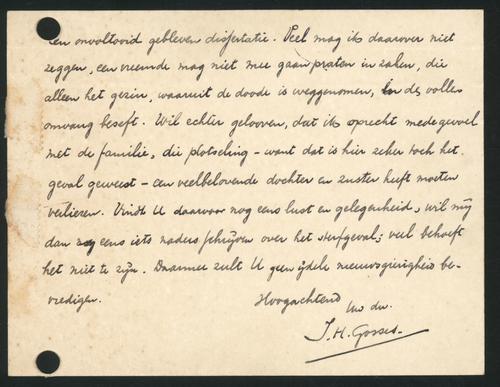 een onvoltooid gebleven dissertatie. Veel mag ik daarover niet
zeggen, een vreemde mag niet mee gaan praten in zaken, die
alleen het gezin, waaruit de doode is weggenomen, in den vollen
omvang beseft. Wil echter gelooven, dat ik oprecht medegevoel
met de familie, die plotseling – want dat is hier zeker toch het
geval geweest – een veelbelovende dochter en zuster heeft moeten
verliezen. Vindt U daarvoor nog eens lust en gelegenheid, wil mij
dan nog eens iets naders schrijven over het sterfgeval; veel behoeft
het niet te zijn. Daarmee zult U geen ijdele nieuwsgierigheid be-
vredigen.
Hoogachtend
Uw dw.
J.H. Gosses.